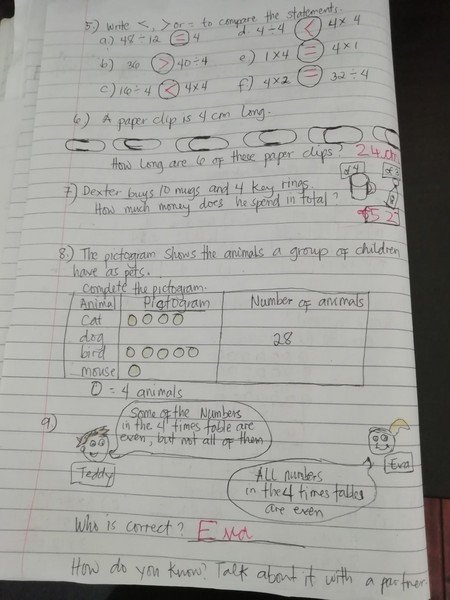 5) Write <, > or = to compare the statements.
a) 48÷12 = 4 d. 4÷4 < 4×4
b) 36 > 40÷4 e) 1×4 = 4×1
c) 16÷4 < 4×4 f) 4×2 = 32÷4
6) A paper clip is 4 cm long.
How long are 6 of these paper clips? 24cm
7) Dexter buys 10 mugs and 4 key rings
How much money does he spend in total?
8.) The pictogram shows the animals a group of children
have as pets.
Complete the pictogram.
Animal Pictogram Number of animals
cat
dog 28
bird
mouse
O = 4 animals
9)
Some of the Numbers
in the 4 times table are
even, but not all of them
Teddy
Eva
All numbers
in the 4 times tables
are even
Who is correct? Eva
How do you know? Talk about it with a partner